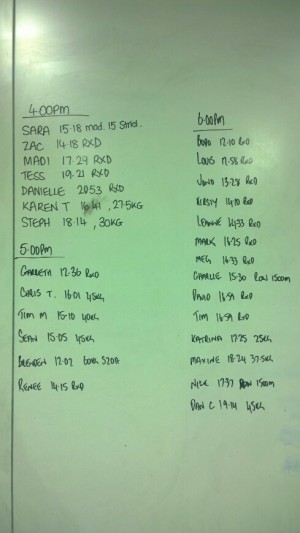 4:00PM
SARA 15-18 mod. 15 Strict.
ZAC 14-18 RXD
MADI 17-29 RXD
TESS 19-21 RXD
DANIELLE 20:53 RXD
KAREN T 16:41, 27.5KG
STEPH 18:14, 30KG
5:00pm
GARRETH 12:36 RXD
CHRIS T. 16:01 45KG
TIM M 15-10 40KG
SEAN 15-05 45KG
BRENDEN 12:02 60KG
RENEE 14:15 RXD
6:00pm
12-10 RXD
LOUIS 12-58 RXD
JUNO 13-28 RXD
KIRSTY 14-10 RXD
LEANNE 14:33 RXD
MARK 16:25 RXD
MEG 16:33 RXD
CHARLIE 15:30 ROW 1500m
DAVID 16:59 RXD
TIM 16:59 RXD
KATRINA 17:25 25KG
MAXINE 18:24 37.5KG
NICK 17:37 ROW 1500m
DAN C 19:14 45KG